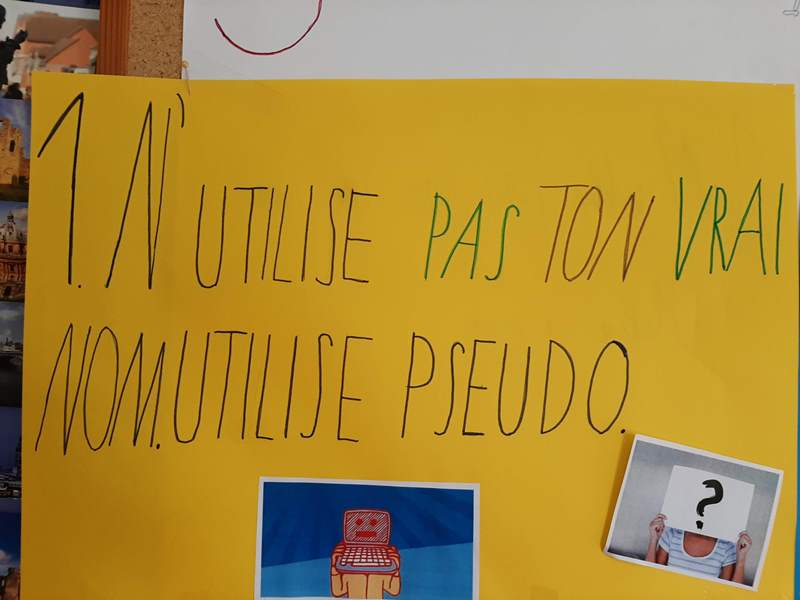 1. N'UTILISE PAS TON VRAI
NOM. UTILISE PSEUDO.
?